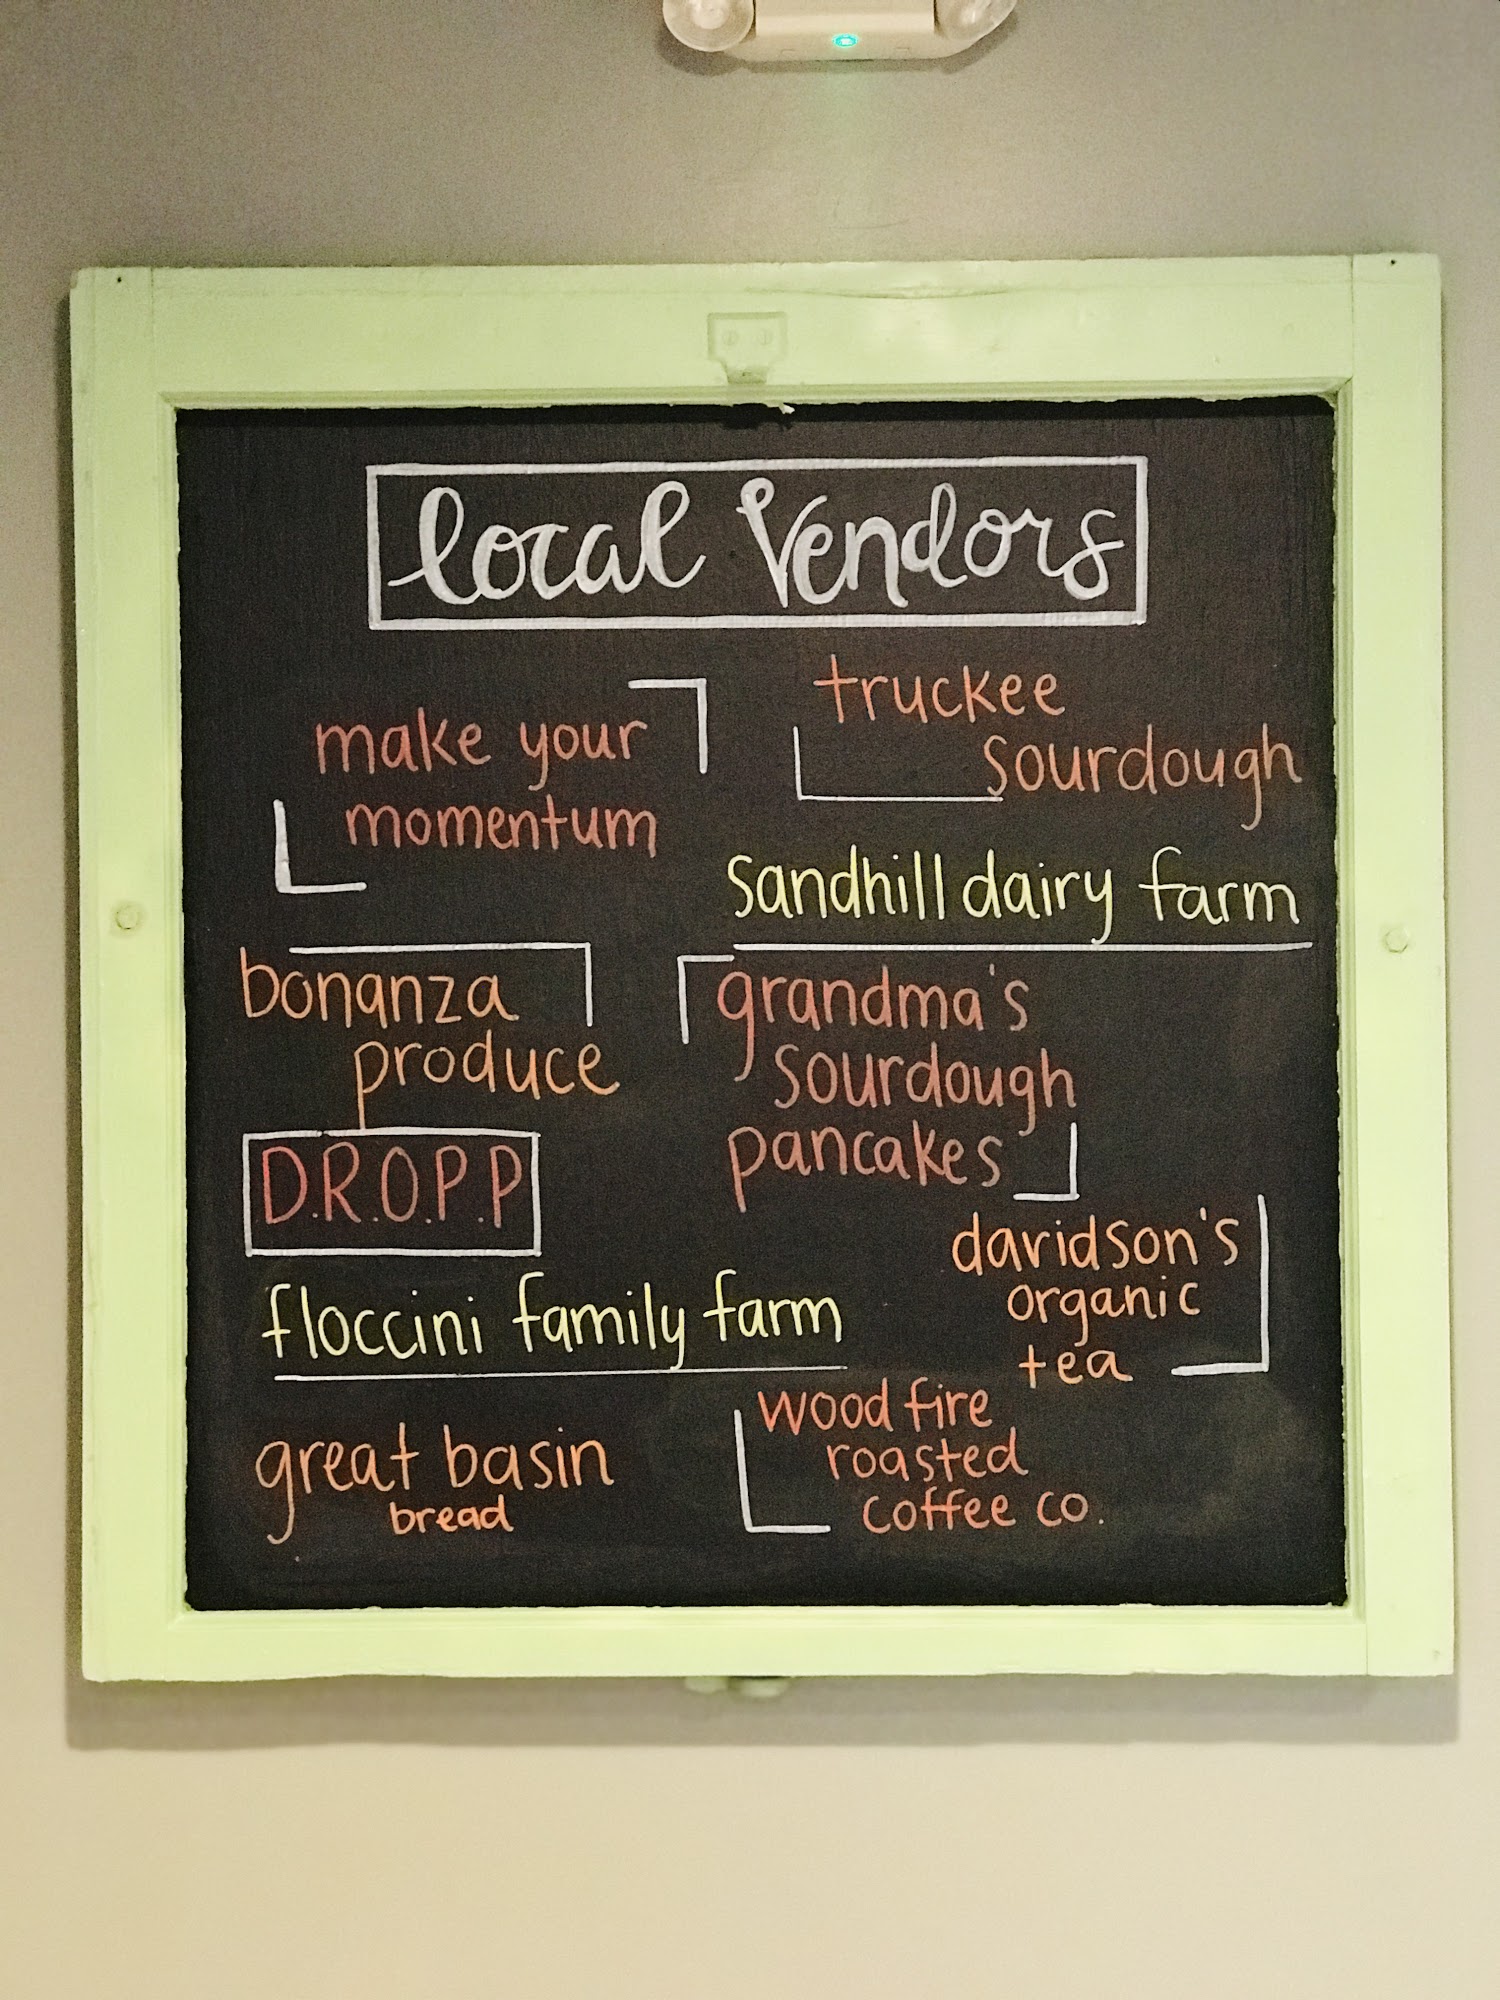 local Vendors
make your
momentum
truckee
sourdough
sandhill dairy farm
bonanza
produce
grandma's
sourdough
pancakes
D.R.O.P.P
davidson's
organic
tea
floccini family farm
great basin
bread
wood fire
roasted
coffee co.